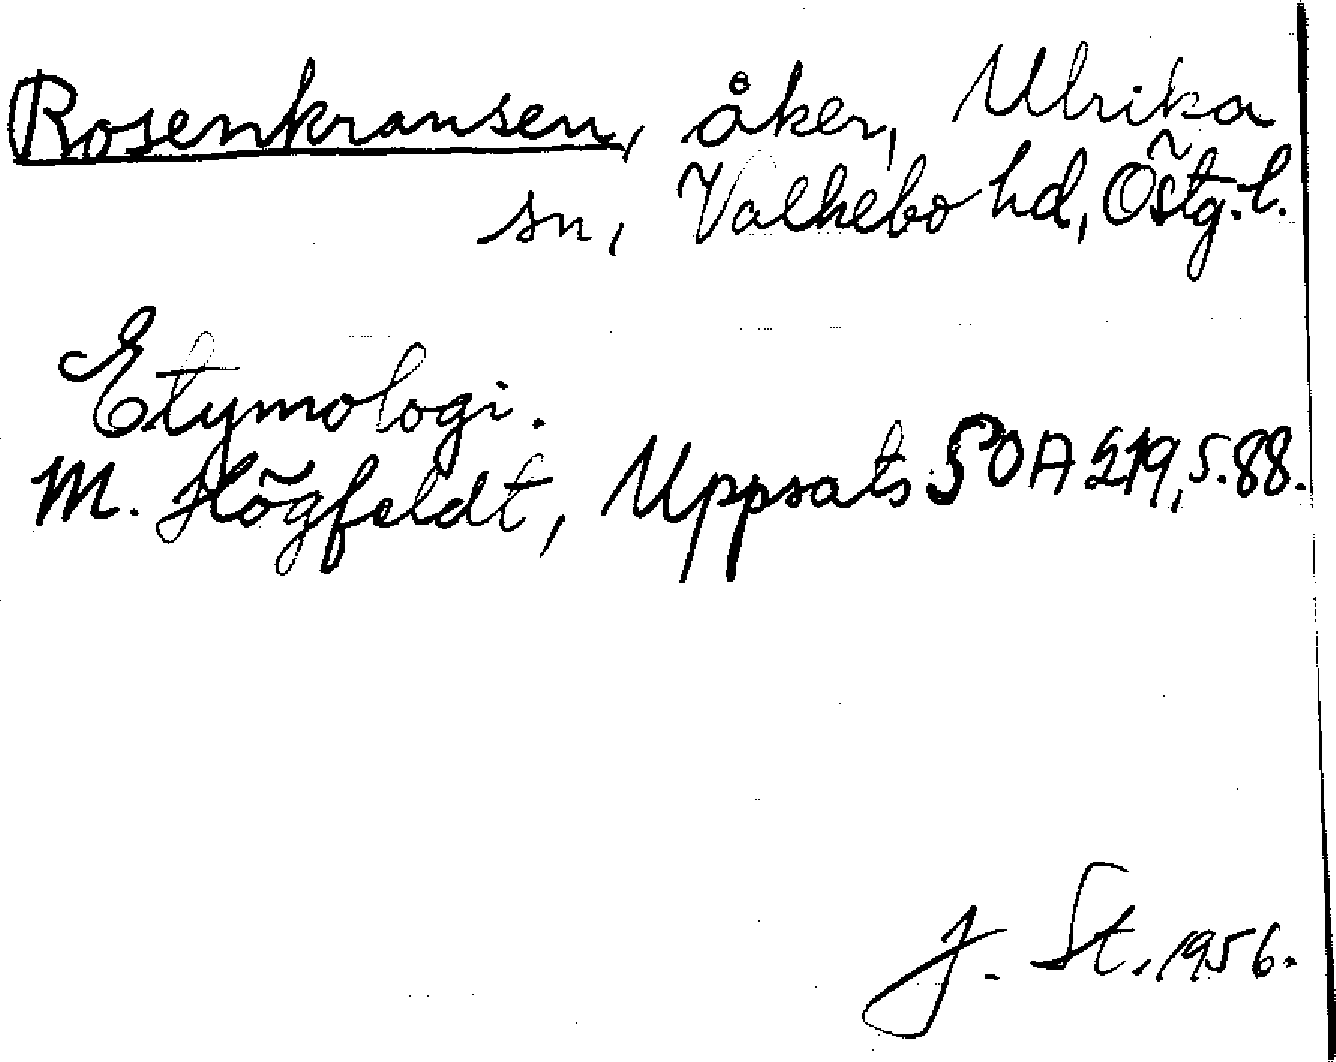 Rosenkransen, åker, Ulrika
sn, Valkebo hd, Östg.l.
Etymologi.
M. Högfeldt, Uppsats SOA 219, s. 88.
J. St. 1956.